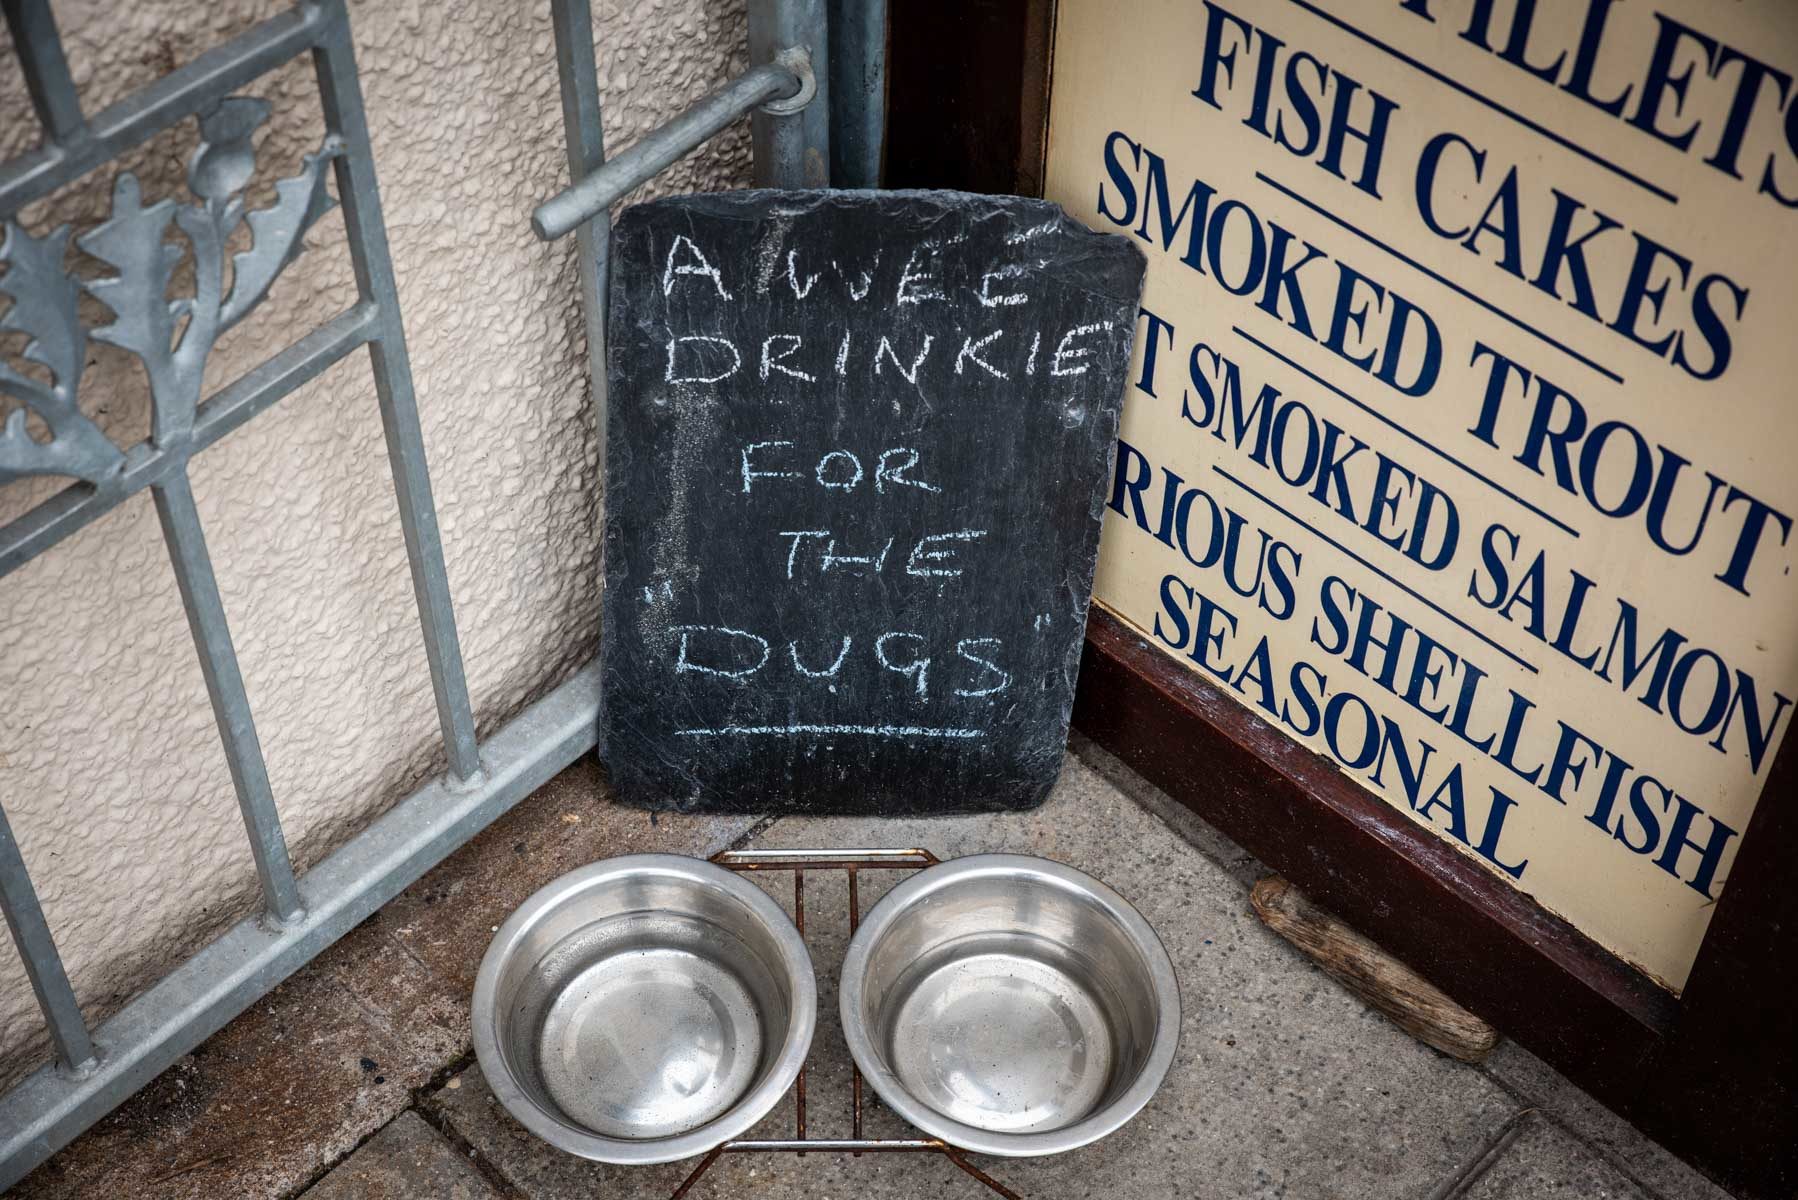 A WEE
DRINKIE"
FOR
THE
"DUGS"
FISH CAKES
SMOKED TROUT
SMOKED SALMON
SHELLFISH
SEASONAL